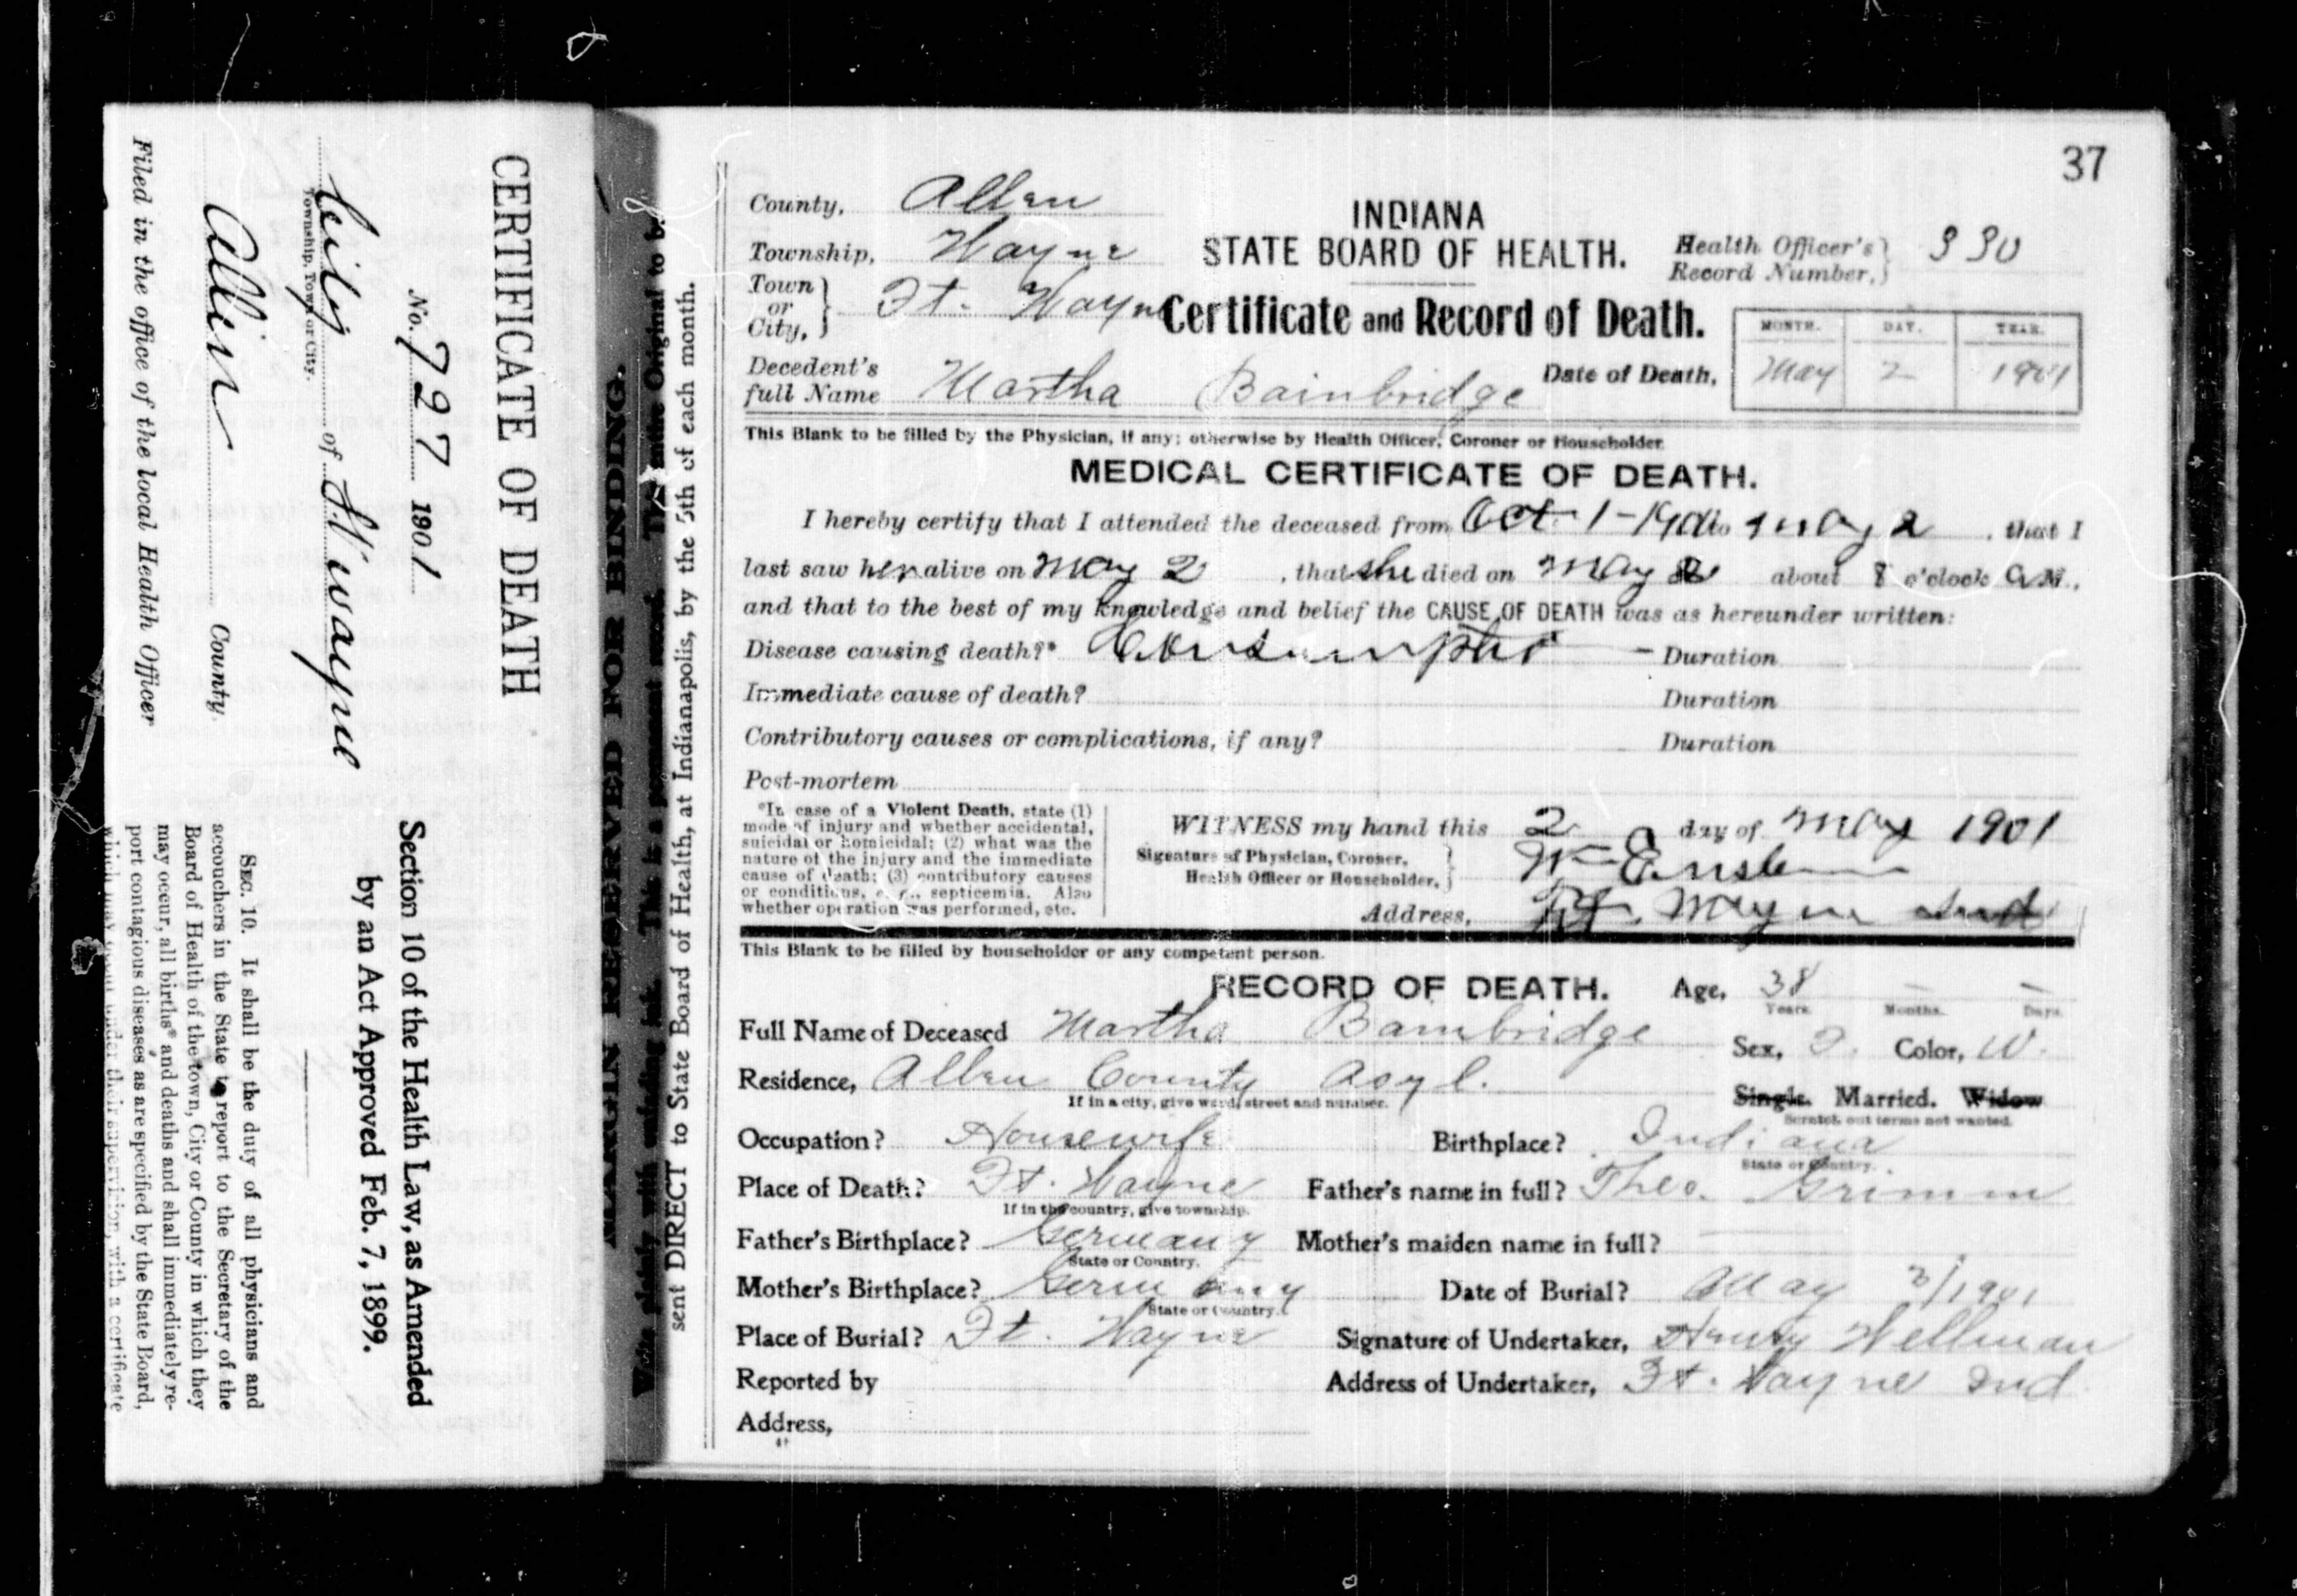 CERTIFICATE OF DEATH
No. 727 1901
City of Ft Wayne
Township, Town or City.
Allen County.
Filed in the office of the local Health Officer
Section 10 of the Health Law, as Amended
by an Act Approved Feb. 7, 1899.
SEC. 10. It shall be the duty of all physicians and
accouchers in the State to report to the Secretary of the
Board of Health of the town, City or County in which they
may occur, all births* and deaths and shall immediately re-
port contagious diseases as are specified by the State Board,
which may occur under their supervision, with a certificate
MARGIN RESERVED FOR BINDING.
Write plainly with unfading ink. This is a permanent record. The entire Original to be
sent DIRECT to State Board of Health, at Indianapolis, by the 5th of each month.
37
County, Allen
Township, Wayne
Town or City, Ft. Wayne
INDIANA
STATE BOARD OF HEALTH.
Certificate and Record of Death.
Health Officer's Record Number,
MONTH. DAY. YEAR.
Decedent's full Name Martha Bainbridge Date of Death, May 2 1901
This Blank to be filled by the Physician, if any; otherwise by Health Officer, Coroner or Householder.
MEDICAL CERTIFICATE OF DEATH.
I hereby certify that I attended the deceased from Oct 1- to May 2, that I
last saw her alive on May 2, that she died on May 2 about 8 o'clock A.M.,
and that to the best of my knowledge and belief the CAUSE OF DEATH was as hereunder written:
Disease causing death?* Consumption Duration
Immediate cause of death? Duration
Contributory causes or complications, if any? Duration
Post-mortem
*In case of a Violent Death, state (1)
mode of injury and whether accidental,
suicidal or homicidal; (2) what was the
nature of the injury and the immediate
cause of death; (3) contributory causes
or conditions, e. g., septicemia. Also
whether operation was performed, etc.
WITNESS my hand this 2 day of May 1901
Signature of Physician, Coroner,
Health Officer or Householder,
Address, Ft. Wayne Ind
This Blank to be filled by householder or any competent person.
RECORD OF DEATH. Age, 38 — —
Years. Months. Days.
Full Name of Deceased Martha Bainbridge
Sex, F. Color, W.
Residence, Allen County Asyl.
If in a city, give ward, street and number.
Single. Married. Widow
Scratch out terms not wanted.
Occupation? Housewife Birthplace? Indiana
State or Country.
Place of Death? Ft. Wayne Father's name in full? Theo. Grimm
If in the country, give township.
Father's Birthplace? Germany Mother's maiden name in full?
State or Country.
Mother's Birthplace? Germany Date of Burial? May 3/1901
State or Country.
Place of Burial? Ft. Wayne Signature of Undertaker, Henry Wellman
Reported by Address of Undertaker, Ft. Wayne Ind.
Address,